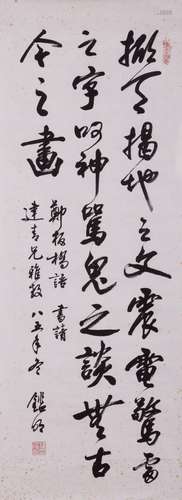 掀天揭地之文震電驚雷
之字呵神罵鬼之談無古
今之畫
鄭板橋語 書請
建青兄雅教 八五年冬